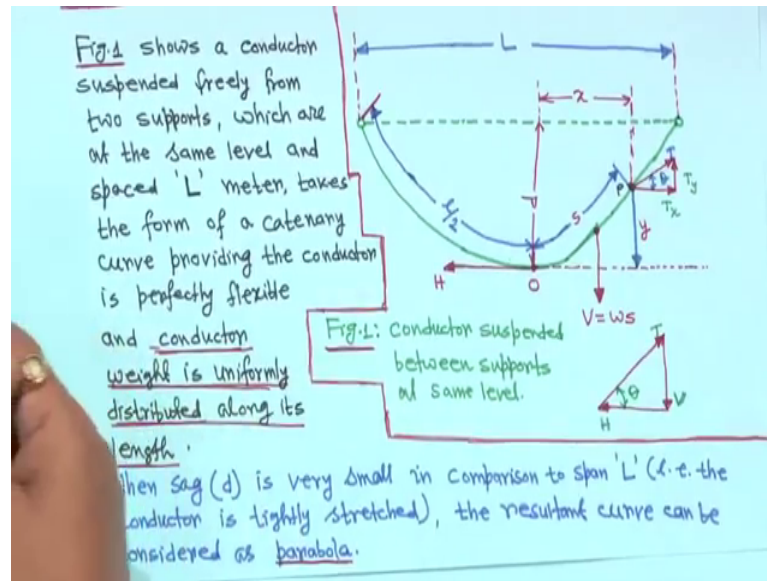 Fig.1 shows a conductor
suspended freely from
two supports, which are
at the same level and
spaced 'L' meter, takes
the form of a catenary
curve providing the conductor
is perfectly flexible
and conductor
weight is uniformly
distributed along its
length.
hen sag (d) is very small in comparison to span 'L' (i.e. the
onductor is tightly stretched), the resultant curve can be
onsidered as parabola.
L
x
d
l/2
s
P
T
θ
Ty
Tx
y
H
O
V=ws
Fig.1: Conductor suspended
between supports
at same level.
T
θ
V
H